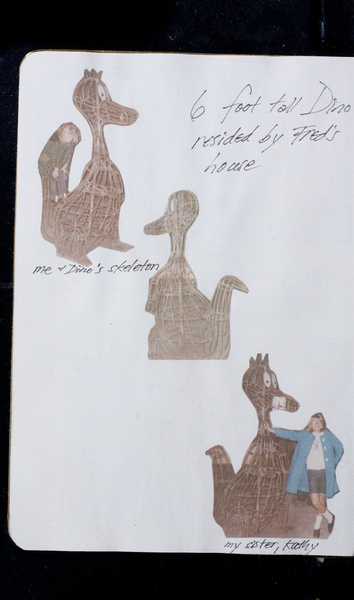 6 foot tall Dino
resided by Fred's
house
me + Dino's skeleton
my sister, Kathy